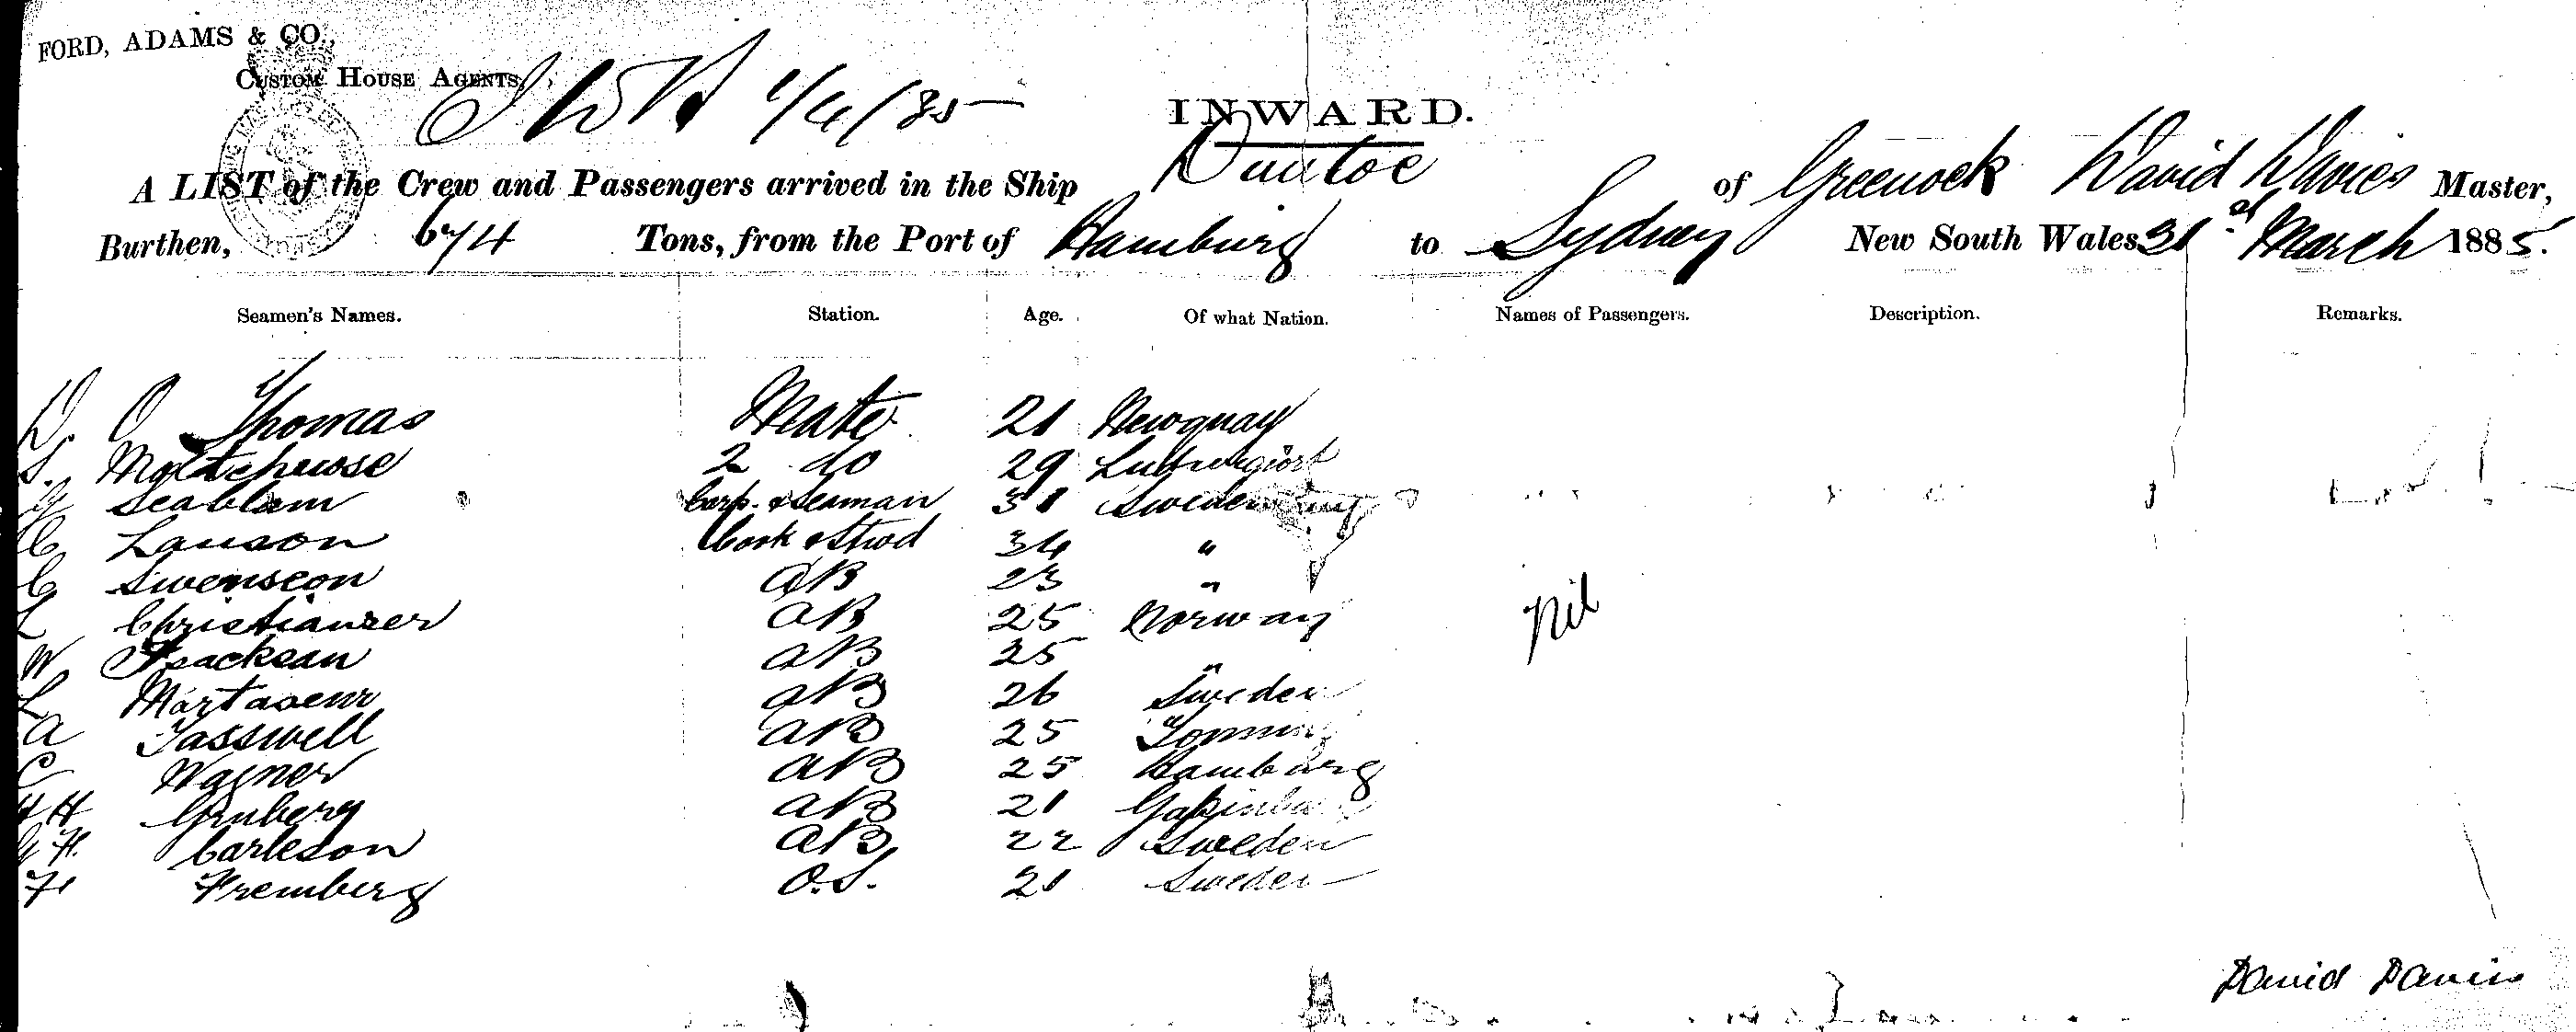 FORD, ADAMS & CO.,
CUSTOM HOUSE AGENTS,
1/4/85
INWARD.
A LIST of the Crew and Passengers arrived in the Ship Duntoe of Greenock David Davies Master,
Burthen, 674 Tons, from the Port of Hamburg to Sydney New South Wales 31st March 1885.
Seamen's Names. Station. Age. Of what Nation. Names of Passengers. Description. Remarks.
D. O Thomas Mate 21 Newquay
S. 2 do 29
Seablam Carp. & Seaman 31 Sweden
C Lauson Cook & Stwd 34 "
C Swenseon AB 23 "
L Christianzer AB 25 Norway
Nil
W Isacksan AB 25 "
L Martasenr AB 26 Sweden
A Tasswell AB 25
C Wagner AB 25 Hamburg
H Grnberg AB 21
F. Carleson AB 22 Sweden
F Fremberg O.S. 21 Sweden
David Davies